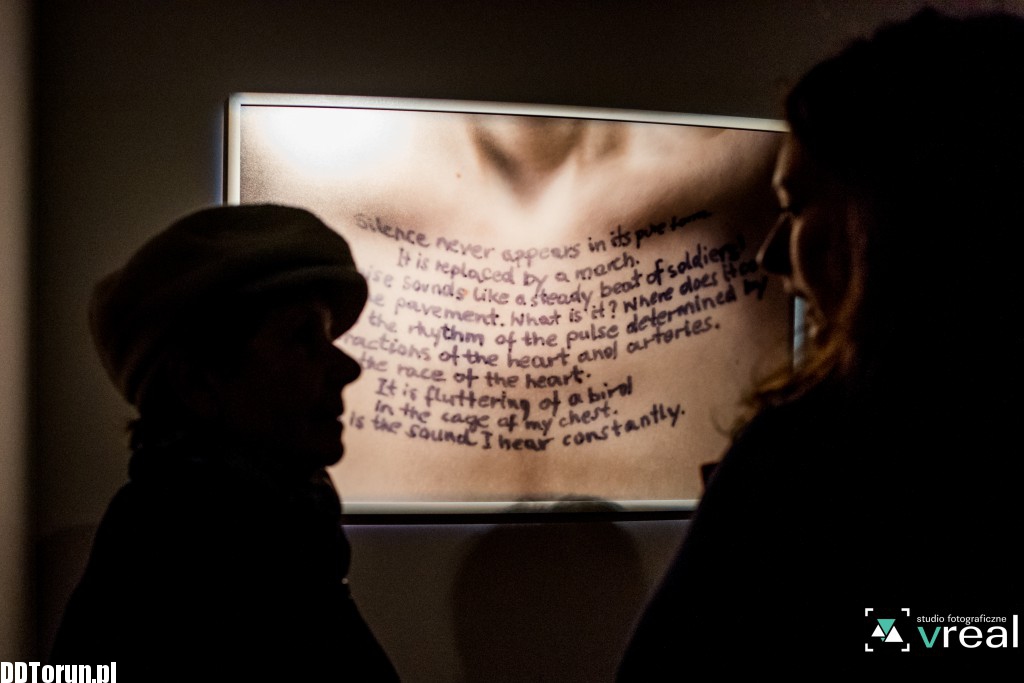 Silence never appears in its pure
It is replaced by a march.
sounds like a steady beat of soldiers'
pavement. What is it? Where does it
the rhythm of the pulse determined by
of the heart and arteries.
the race of the heart.
It is fluttering of a bird
in the cage of my chest.
is the sound I hear constantly.
studio fotograficzne
vreal
DDTorun.pl